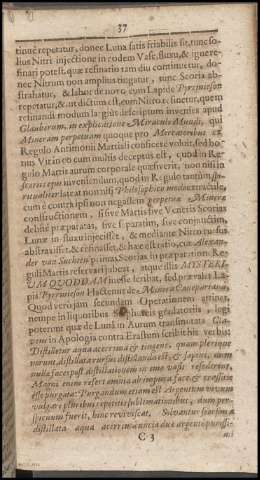 37
tinuè repetatur, donec Luna satis friabilis sit, tunc so-
lius Nitri injectione in eodem Vase, fluxu, & igne re-
finari potest, quæ refinatio tam diu continuetur, do-
nec Nitrum non amplius tingatur, tunc Scoria abs-
trahatur, & labor de novo cum Lapide Pyrimison
repetatur, & ut dictum est, cum Nitro refinetur, quem
refinandi modum largius descriptum invenies apud
Glauberum, in explicatione Miraculi Mundi, qui
Mineram perpetuam quoque pro Mercatoribus ex
Regulo Antimonii Martiali conficere voluit, sed bo-
nus Vir in eo cum multis deceptus est, quod in Re-
gulo Martis aurum corporale quæsiverit, non nisi in
scoriis reperiendum, quod in Regulo tantum
ritualiter lateat non nisi Philosophico modo
cum è contra ipsi non negassem perpetua Minera
constructionem, si sive Martis sive Veneris Scorias
debitè præparatas, sive separatim, sive conjunctim,
Lunæ in fluxu injecisset, & mediante Nitro rursus
abstraxisset, & refinasset, & hæc est ratio, cur Alexan-
der van Suchten primas Scorias in præparatione Re-
guli Martis reservari jubeat, atque illis MYSTERI-
UM QUODDAM inesse scribat, sed prævale La-
pis Pyrimison Hactenus de Minera Comparativa.
Quod verò jam secundam Operationem attinet,
nempe in liquoribus Stephaneis gradatoriis, logi
poterunt quæ de Lunæ in Aurum transmutatis Gla-
zem in Apologia contra Erastum scribit his verbis:
Distillatur aqua acerrima & tingens, quam plerique
norunt distillata rursus distillanda est, & sapius, dum
nulla fæces post distillationem in imo vasis resederint,
Magni enim refert omnia ab impura face & crassitie
esse purgata: Purgandum etiam est Argentum vivum
vulgare pluribus repetitis sublimationibus, dum per-
spicuum fuerit, hinc reviviscat. Solvantur seorsim à
distillata aqua acerrima uncia duæ argenti purissi-
C 3
mi